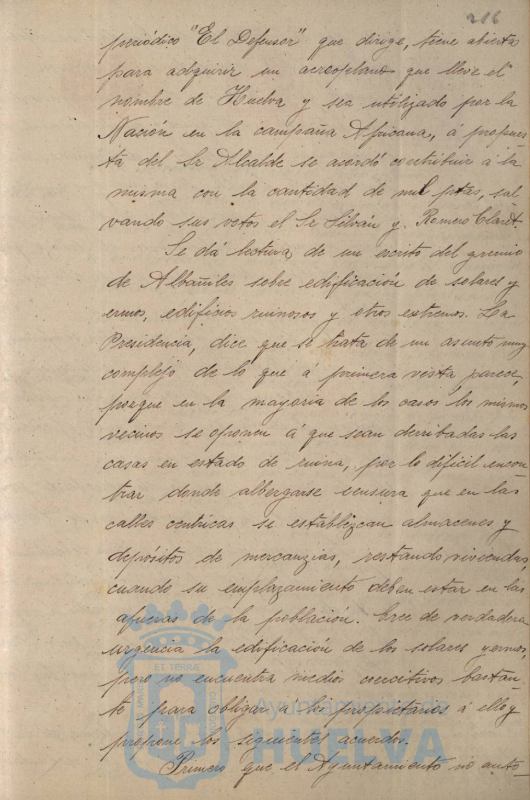 216
periódico "El Defensor" que dirige, tiene abierta
para adquirir un aereoplano que lleve el
nombre de Huelva y sea utilizado por la
Nación en la campaña Africana, á propues
ta del Sr Alcalde se acordó contribuir á la
misma con la cantidad de mil ptas, sal
vando sus votos el Sr Silván y Romero Claret.
Se dá lectura de un escrito del gremio
de Albañiles sobre edificación de solares y
ermos, edificios ruinosos y otros extremos. La
Presidencia, dice que se trata de un asunto muy
complejo de lo que á primera vista, parece,
porque en la mayoria de los casos los mismos
vecinos se oponen á que sean derribadas las
casas en estado de ruina, por lo dificil encon
trar donde albergarse censura que en las
calles centricas se establezcan almacenes y
depósitos de mercanzias, restando viviendas,
cuando su emplazamiento deben estar en las
afueras de la población. Cree de verdadera
urgencia la edificación de los solares yermos,
pero no encuentra medios coercitivos bastan-
te para obligar á los propietarios á ello y
propone los siguientes acuerdos.
Primero que el Ayuntamiento no auto-
Ayuntamiento de
HUELVA